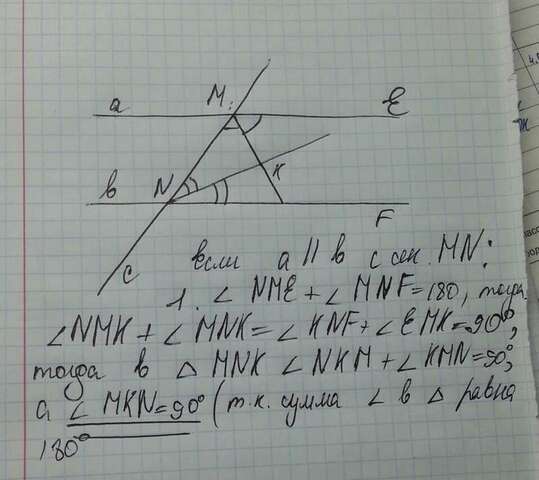 M
E
a
K
b
N
F
c
Если a || b с сек. MN:
1. ∠ NME + ∠ MNF = 180, тогда
∠NMK + ∠ MNK = ∠ KNF + ∠ EMK = 90°,
тогда в △ MNK ∠ NKM + ∠ KMN = 90°,
а ∠ MKN = 90° (т.к. сумма ∠ в △ равна
180°